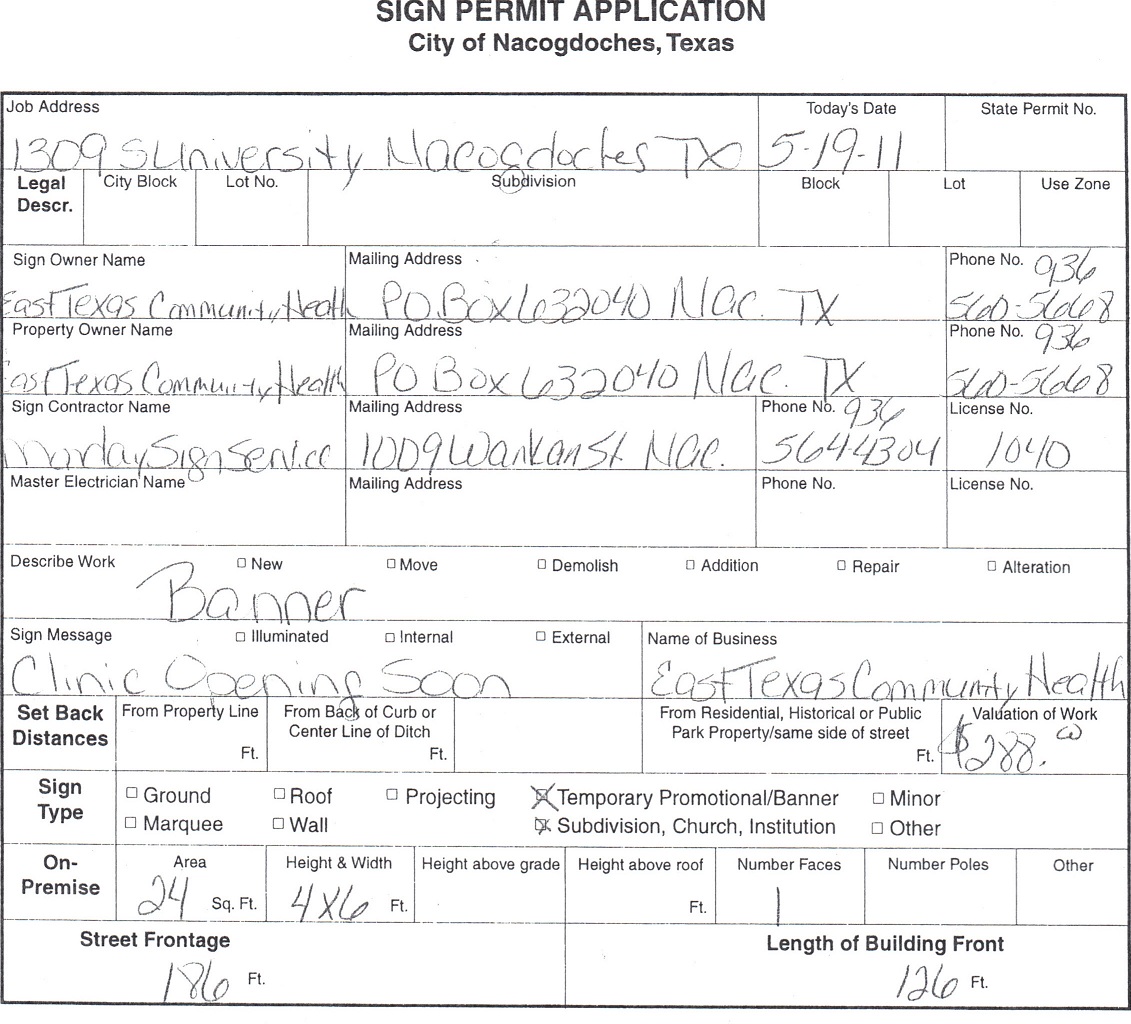 SIGN PERMIT APPLICATION
City of Nacogdoches, Texas
Job Address Today's Date State Permit No.
1309 S University Nacogdoches TX 5-19-11
Legal Descr. City Block Lot No. Subdivision Block Lot Use Zone
Sign Owner Name Mailing Address Phone No. 936
East Texas Community Health PO Box 632040 Nac. TX 560-5668
Property Owner Name Mailing Address Phone No. 936
East Texas Community Health PO Box 632040 Nac. TX 560-5668
Sign Contractor Name Mailing Address Phone No. 936 License No.
Sign Service 1009 Wankan St Nac. 564-4304 1040
Master Electrician Name Mailing Address Phone No. License No.
Describe Work □ New □ Move □ Demolish □ Addition □ Repair □ Alteration
Banner
Sign Message □ Illuminated □ Internal □ External Name of Business
Clinic Opening Soon East Texas Community Health
Set Back From Property Line From Back of Curb or From Residential, Historical or Public Valuation of Work
Distances Center Line of Ditch Park Property/same side of street
Ft. Ft. Ft. $288.
Sign □ Ground □ Roof □ Projecting ☒ Temporary Promotional/Banner □ Minor
Type □ Marquee □ Wall ☒ Subdivision, Church, Institution □ Other
On- Area Height & Width Height above grade Height above roof Number Faces Number Poles Other
Premise 24 Sq. Ft. 4x6 Ft. Ft. 1
Street Frontage Length of Building Front
186 Ft. 126 Ft.